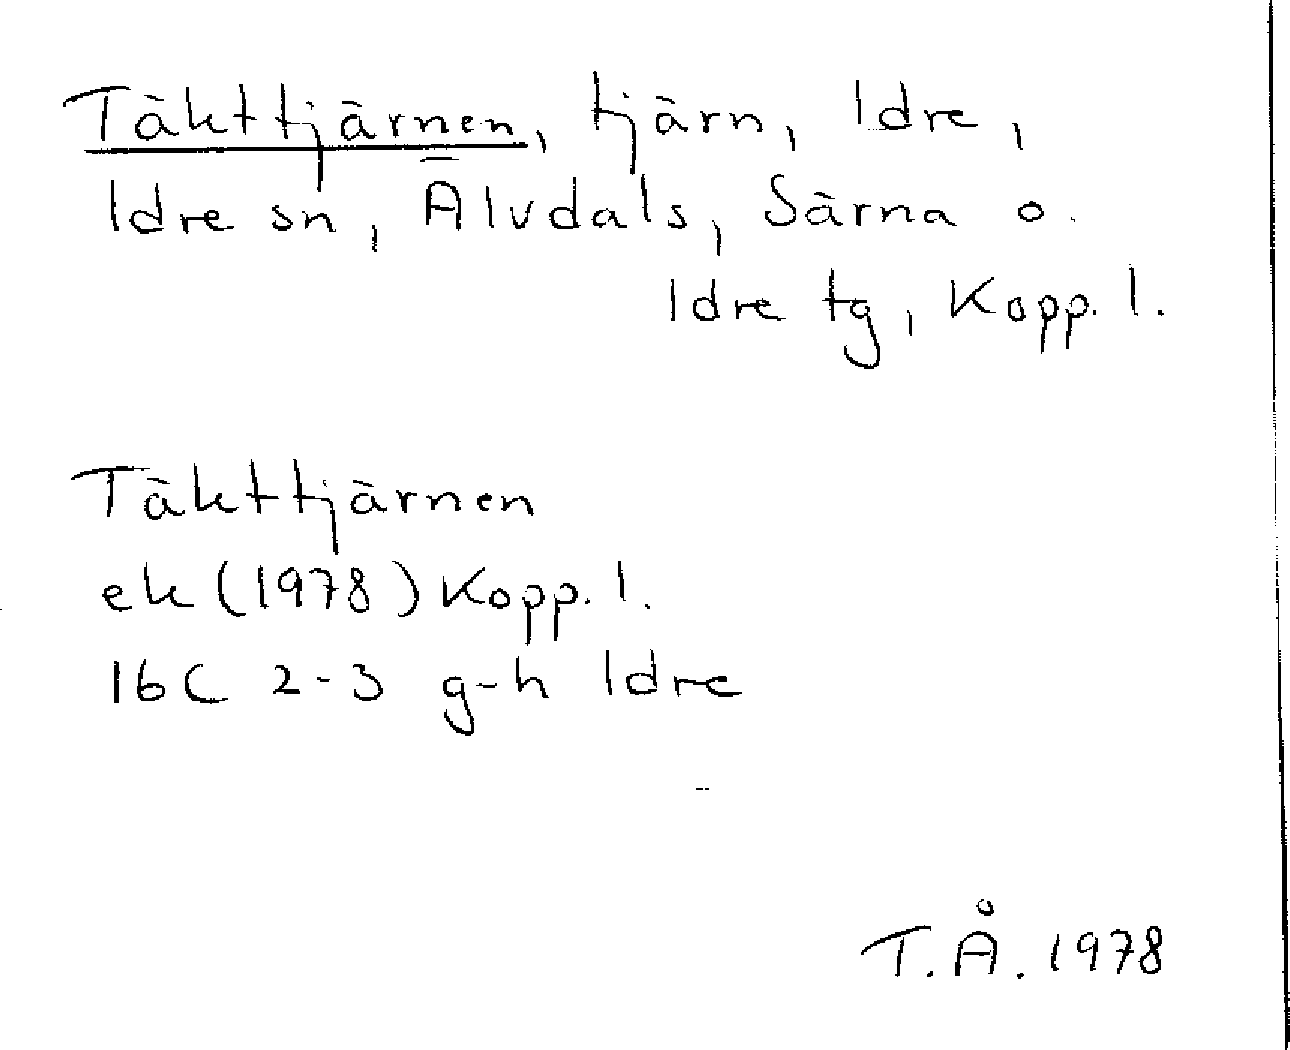 Täkttjärnen, tjärn, Idre,
Idre sn, Älvdals, Särna o.
Idre tg, Kopp. l.
Täkttjärnen
ek (1978) Kopp. l.
16C 2-3 g-h Idre
T.Å. 1978